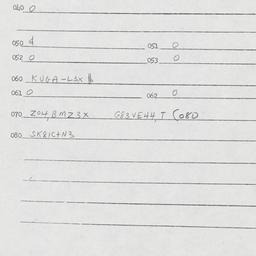 040 0
050 4 051 0
052 0 053 0
060 KUGA-LSX
061 0 062 0
070 Z04,BMZ3X G83VE44,T (080
080 SK8ICTN3